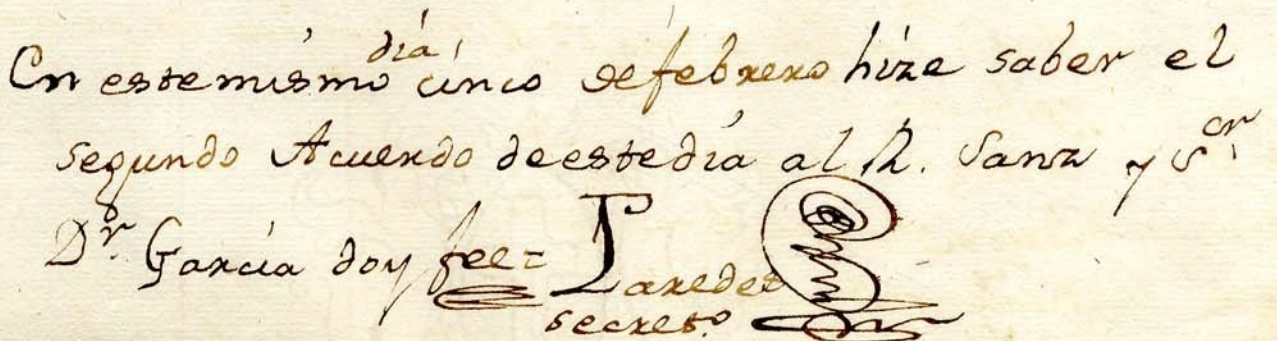 En este mismo día cinco de febrero hize saber el
segundo Acuerdo de este día al R. Sanz y Sᵒʳ
Dʳ. García doy fee=
Paredes
secretº